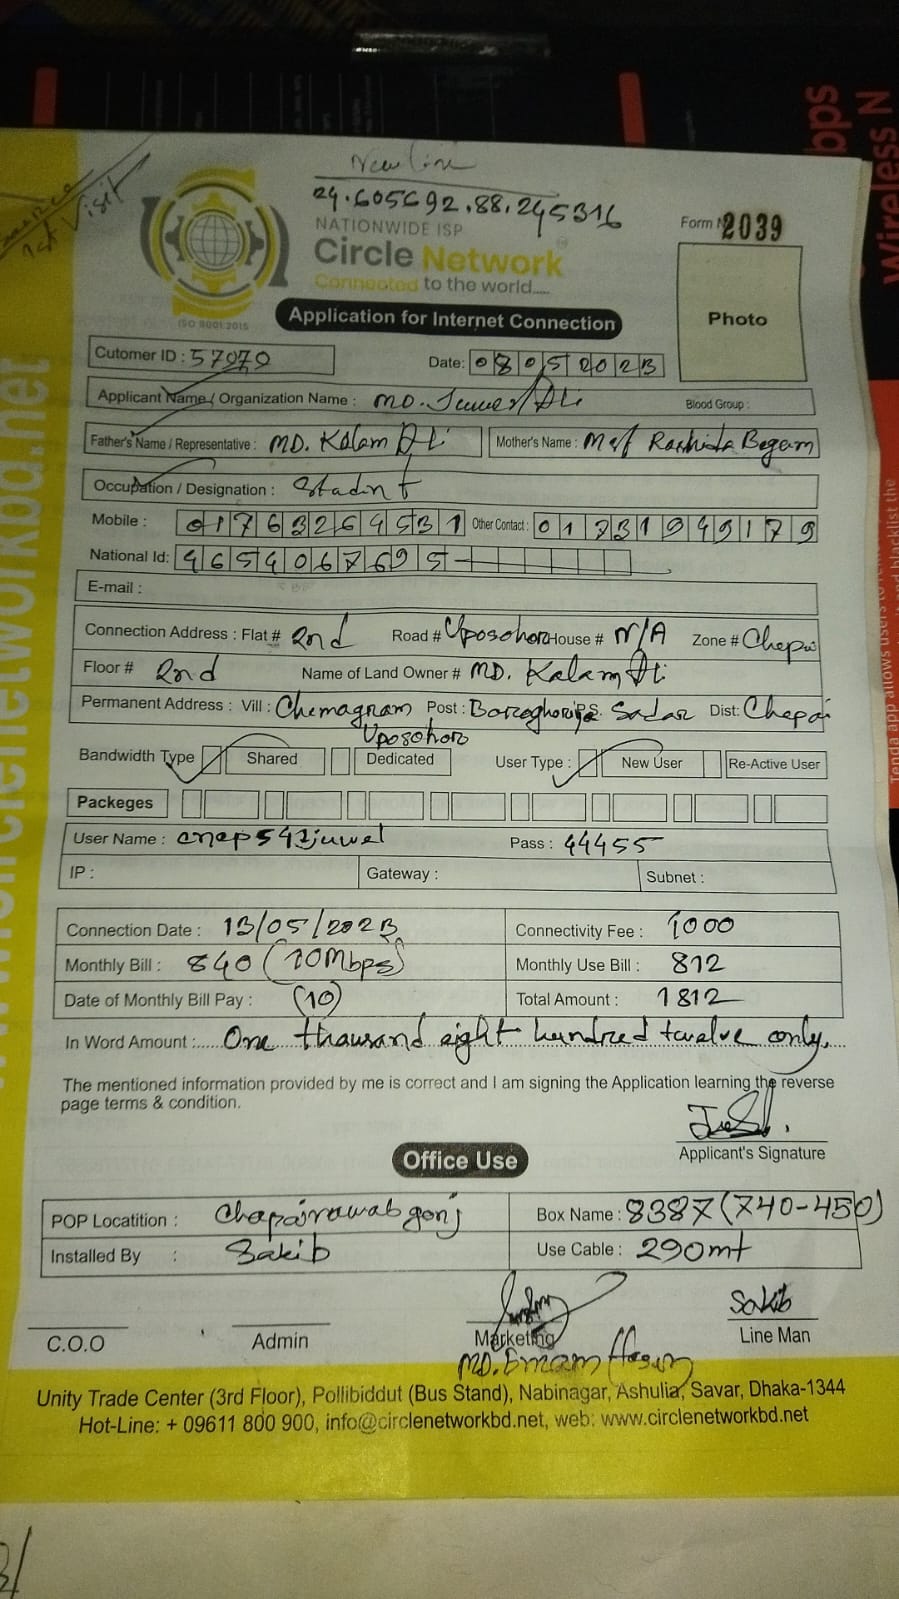 New line
24.605692,88.245316
1st Visit
NATIONWIDE ISP
Form 2039
Circle Network
Connected to the world.....
ISO 9001:2015
Application for Internet Connection
Photo
Cutomer ID : 57070 Date: 08052023
Applicant Name / Organization Name : MD. Ali Blood Group :
Father's Name / Representative : MD. Kalam Ali Mother's Name : Rashida Begam
Occupation / Designation : Stadint
Mobile : 01763264531 Other Contact : 01731949179
National Id: 4654067695
E-mail :
Connection Address : Flat # 2nd Road # Uposohor House # N/A Zone # Chapai
Floor # 2nd Name of Land Owner # MD. Kalam Ali
Permanent Address : Vill : Chemagram Post : P.S. Sadar Dist: Chapai
Uposohor
Bandwidth Type Shared Dedicated User Type : New User Re-Active User
Packeges
User Name : cnap541juwel Pass : 44455
IP : Gateway : Subnet :
Connection Date : 13/05/2023 Connectivity Fee : 1000
Monthly Bill : 840 (10Mbps) Monthly Use Bill : 812
Date of Monthly Bill Pay : (10) Total Amount : 1812
In Word Amount :..... One thousand eight hundred twelve only.
The mentioned information provided by me is correct and I am signing the Application learning the reverse
page terms & condition.
Applicant's Signature
Office Use
POP Locatition : Chapainawabgonj Box Name : 8387(740-450)
Installed By : Sakib Use Cable : 290mt
Sakib
C.O.O Admin Marketing Line Man
MD. Emam Hasan
Unity Trade Center (3rd Floor), Pollibiddut (Bus Stand), Nabinagar, Ashulia, Savar, Dhaka-1344
Hot-Line: + 09611 800 900, info@circlenetworkbd.net, web: www.circlenetworkbd.net